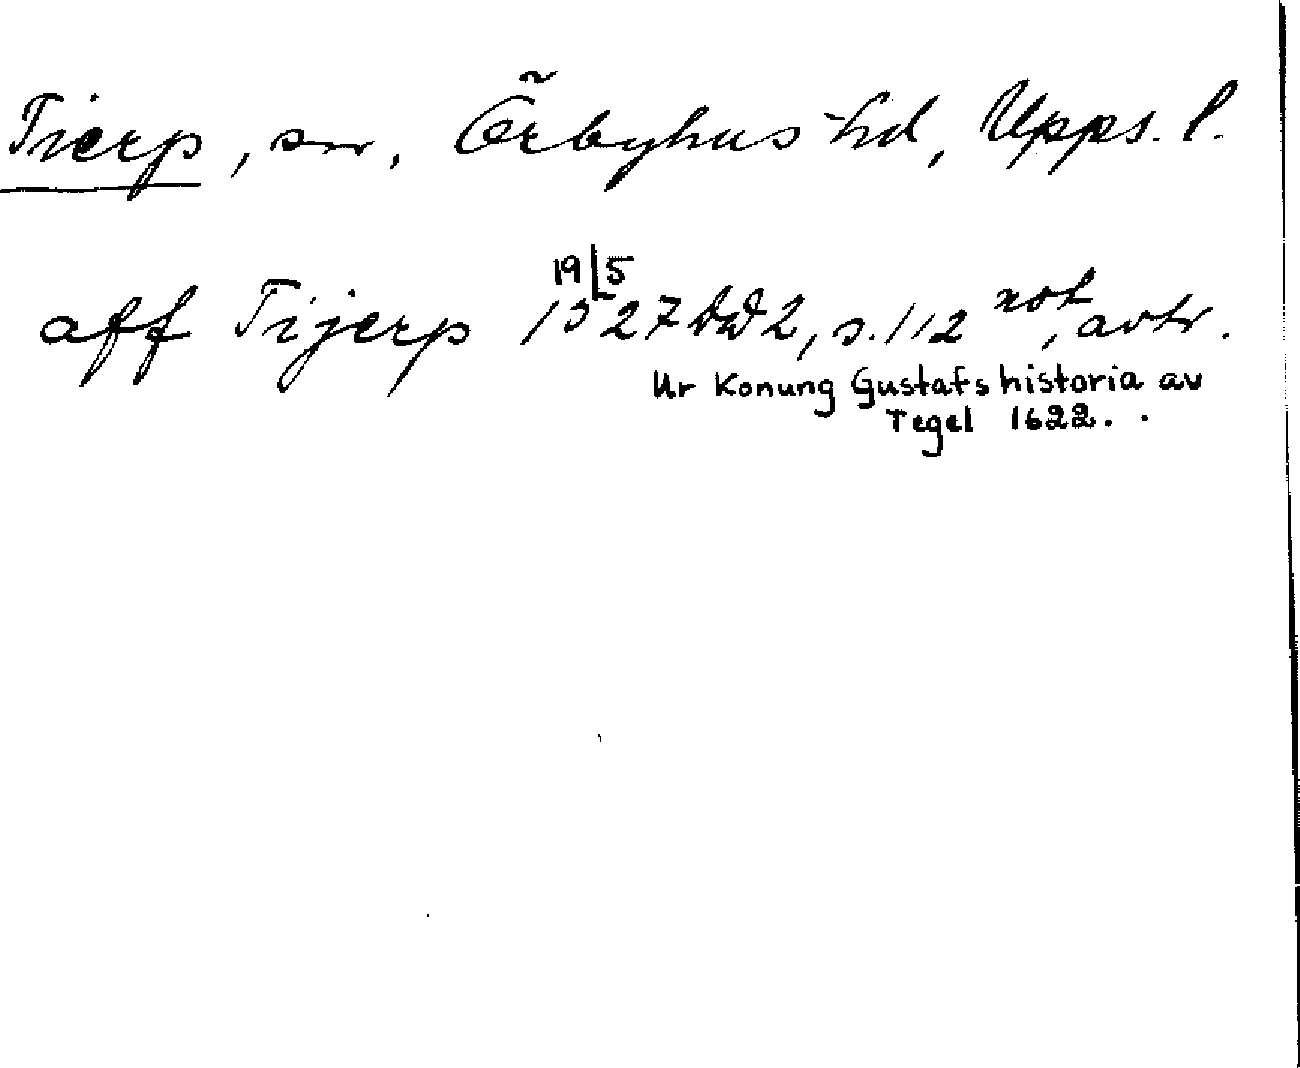 Tierp, sn, Örbyhus hd, Upps. l.
aff Tijerp 19/5 1527 DD 2, s. 112 not, avtr.
Ur Konung Gustafs historia av
Tegel 1622.